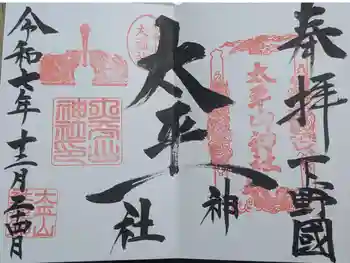 奉拝 下野國
太平山神社
太平山神社
令和七年十二月二十四日
太平山神社印
太平山